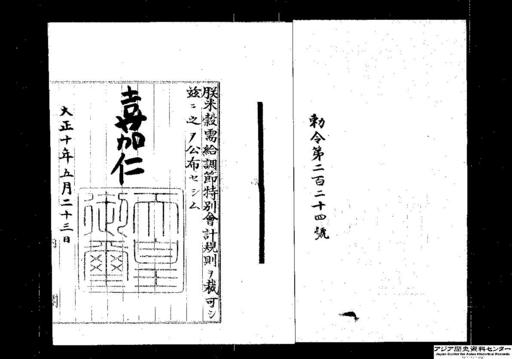 勅令第二百二十四號
朕米穀需給調節特別會計規則ヲ裁可シ
玆ニ之ヲ公布セシム
嘉仁
天皇御璽
大正十年五月二十三日
内閣
アジア歴史資料センター
Japan Center for Asian Historical Records